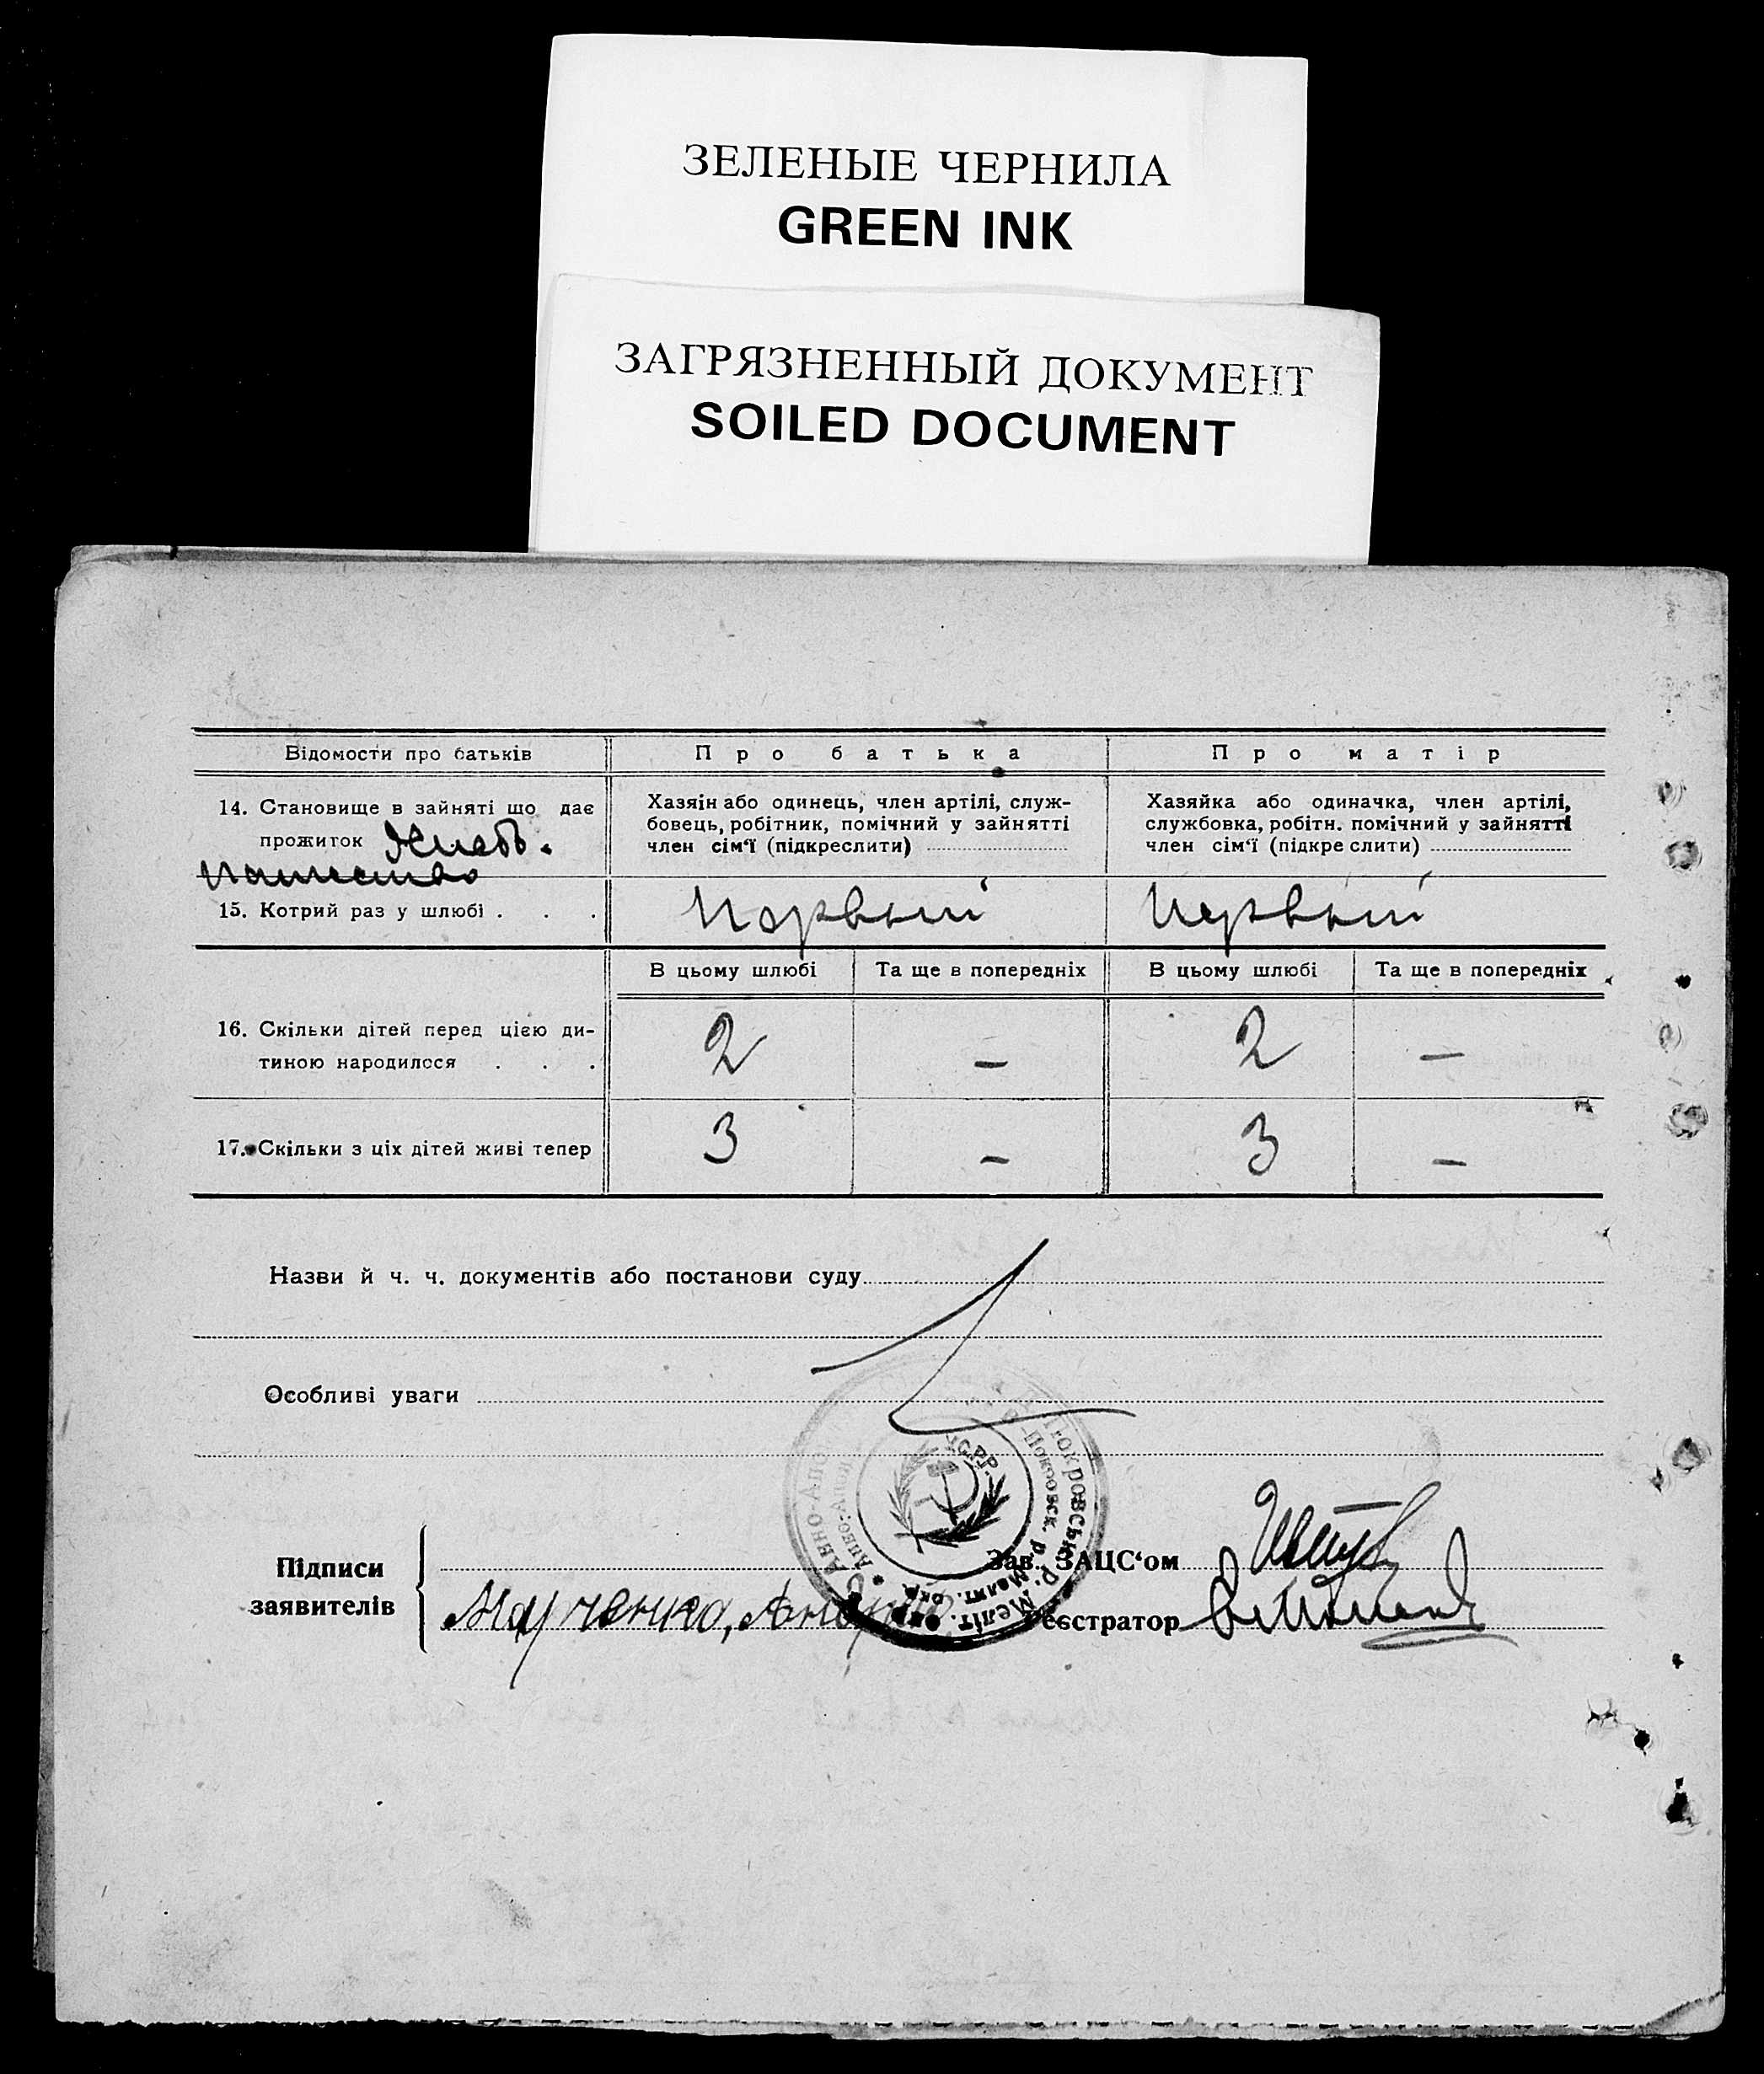 ЗЕЛЕНЫЕ ЧЕРНИЛА
GREEN INK
ЗАГРЯЗНЕННЫЙ ДОКУМЕНТ
SOILED DOCUMENT
Відомости про батьків
Про батька
Про матір
14. Становище в зайняті що дає
прожиток Хлебо-
пашество
Хазяін або одинець, член артілі, служ-
бовець, робітник, помічний у зайнятті
член сім‘ї (підкреслити)
Хазяйка або одиначка, член артілі,
службовка, робітн. помічний у зайнятті
член сім‘ї (підкреслити)
15. Котрий раз у шлюбі . . .
Первый
Первый
В цьому шлюбі
Та ще в попередніх
В цьому шлюбі
Та ще в попередніх
16. Скільки дітей перед цією ди-
тиною народилося . . .
2
—
2
—
17. Скільки з ціх дітей живі тепер
3
—
3
—
Назви й ч. ч. документів або постанови суду
Особливі уваги
УСРР
Покровськ. р. Меліт. окр.
Покровск. р. Мелит. окр.
Підписи
заявителів
Марченко, Андрей
Зав. ЗАЦС‘ом
Реєстратор